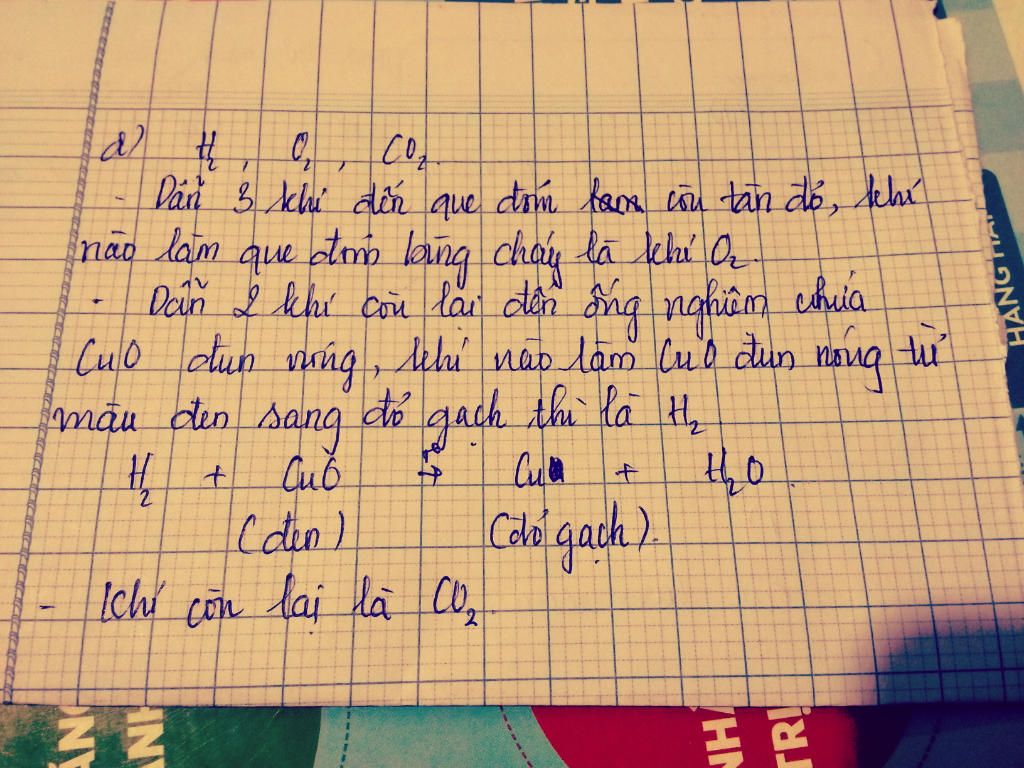 a) H₂, O₂, CO₂.
- Dẫn 3 khí đến que đóm còn tàn đỏ, khí
nào làm que đóm bùng cháy là khí O₂.
- Dẫn 2 khí còn lại đến ống nghiệm chứa
CuO đun nóng, khí nào làm CuO đun nóng từ
màu đen sang đỏ gạch thì là H₂
H₂ + CuO →t° Cu + H₂O.
(đen) (đỏ gạch).
- Khí còn lại là CO₂.
HÀNG HẢI